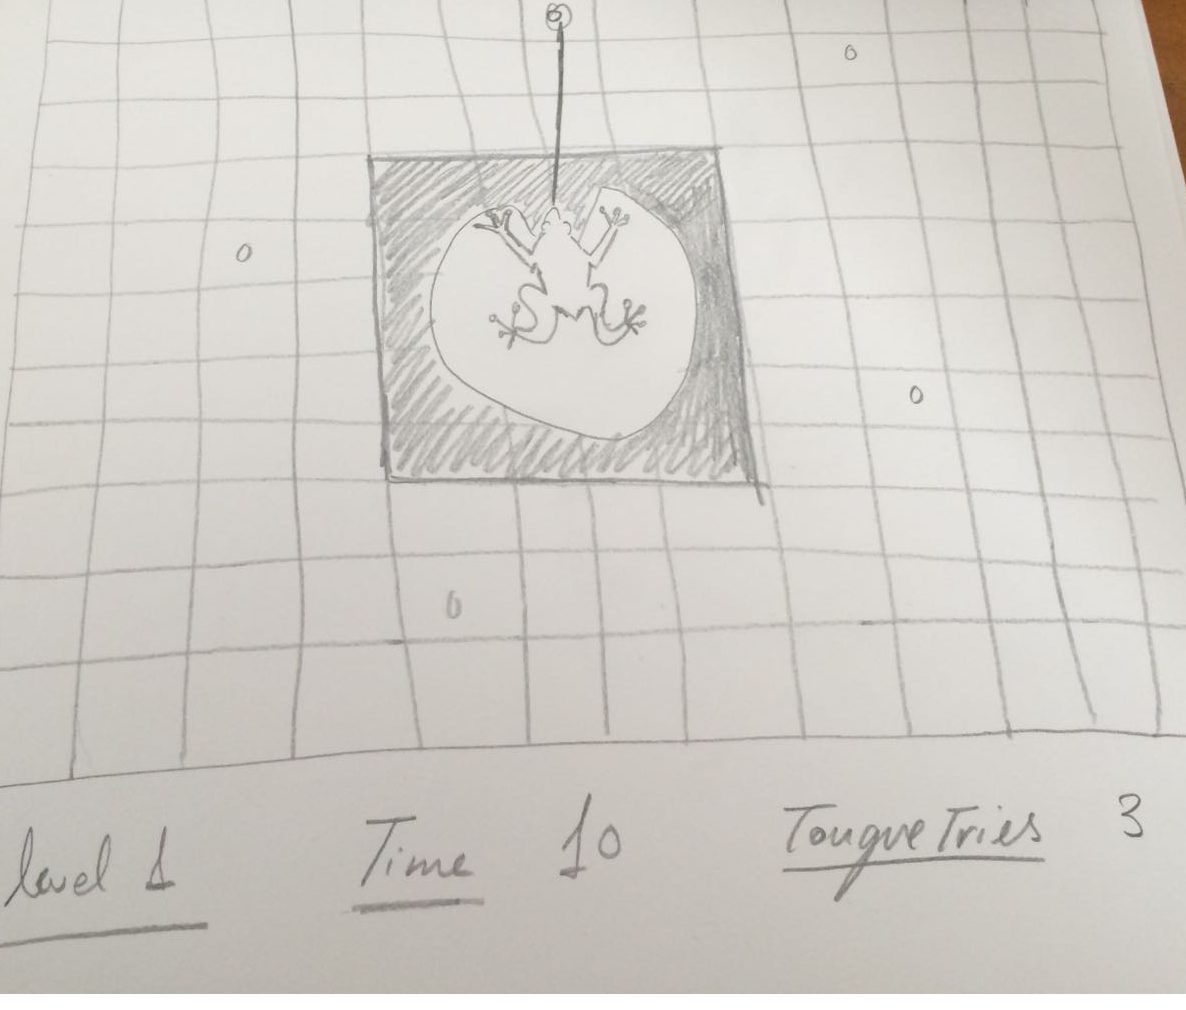 level 1 Time 10 Tongue Tries 3